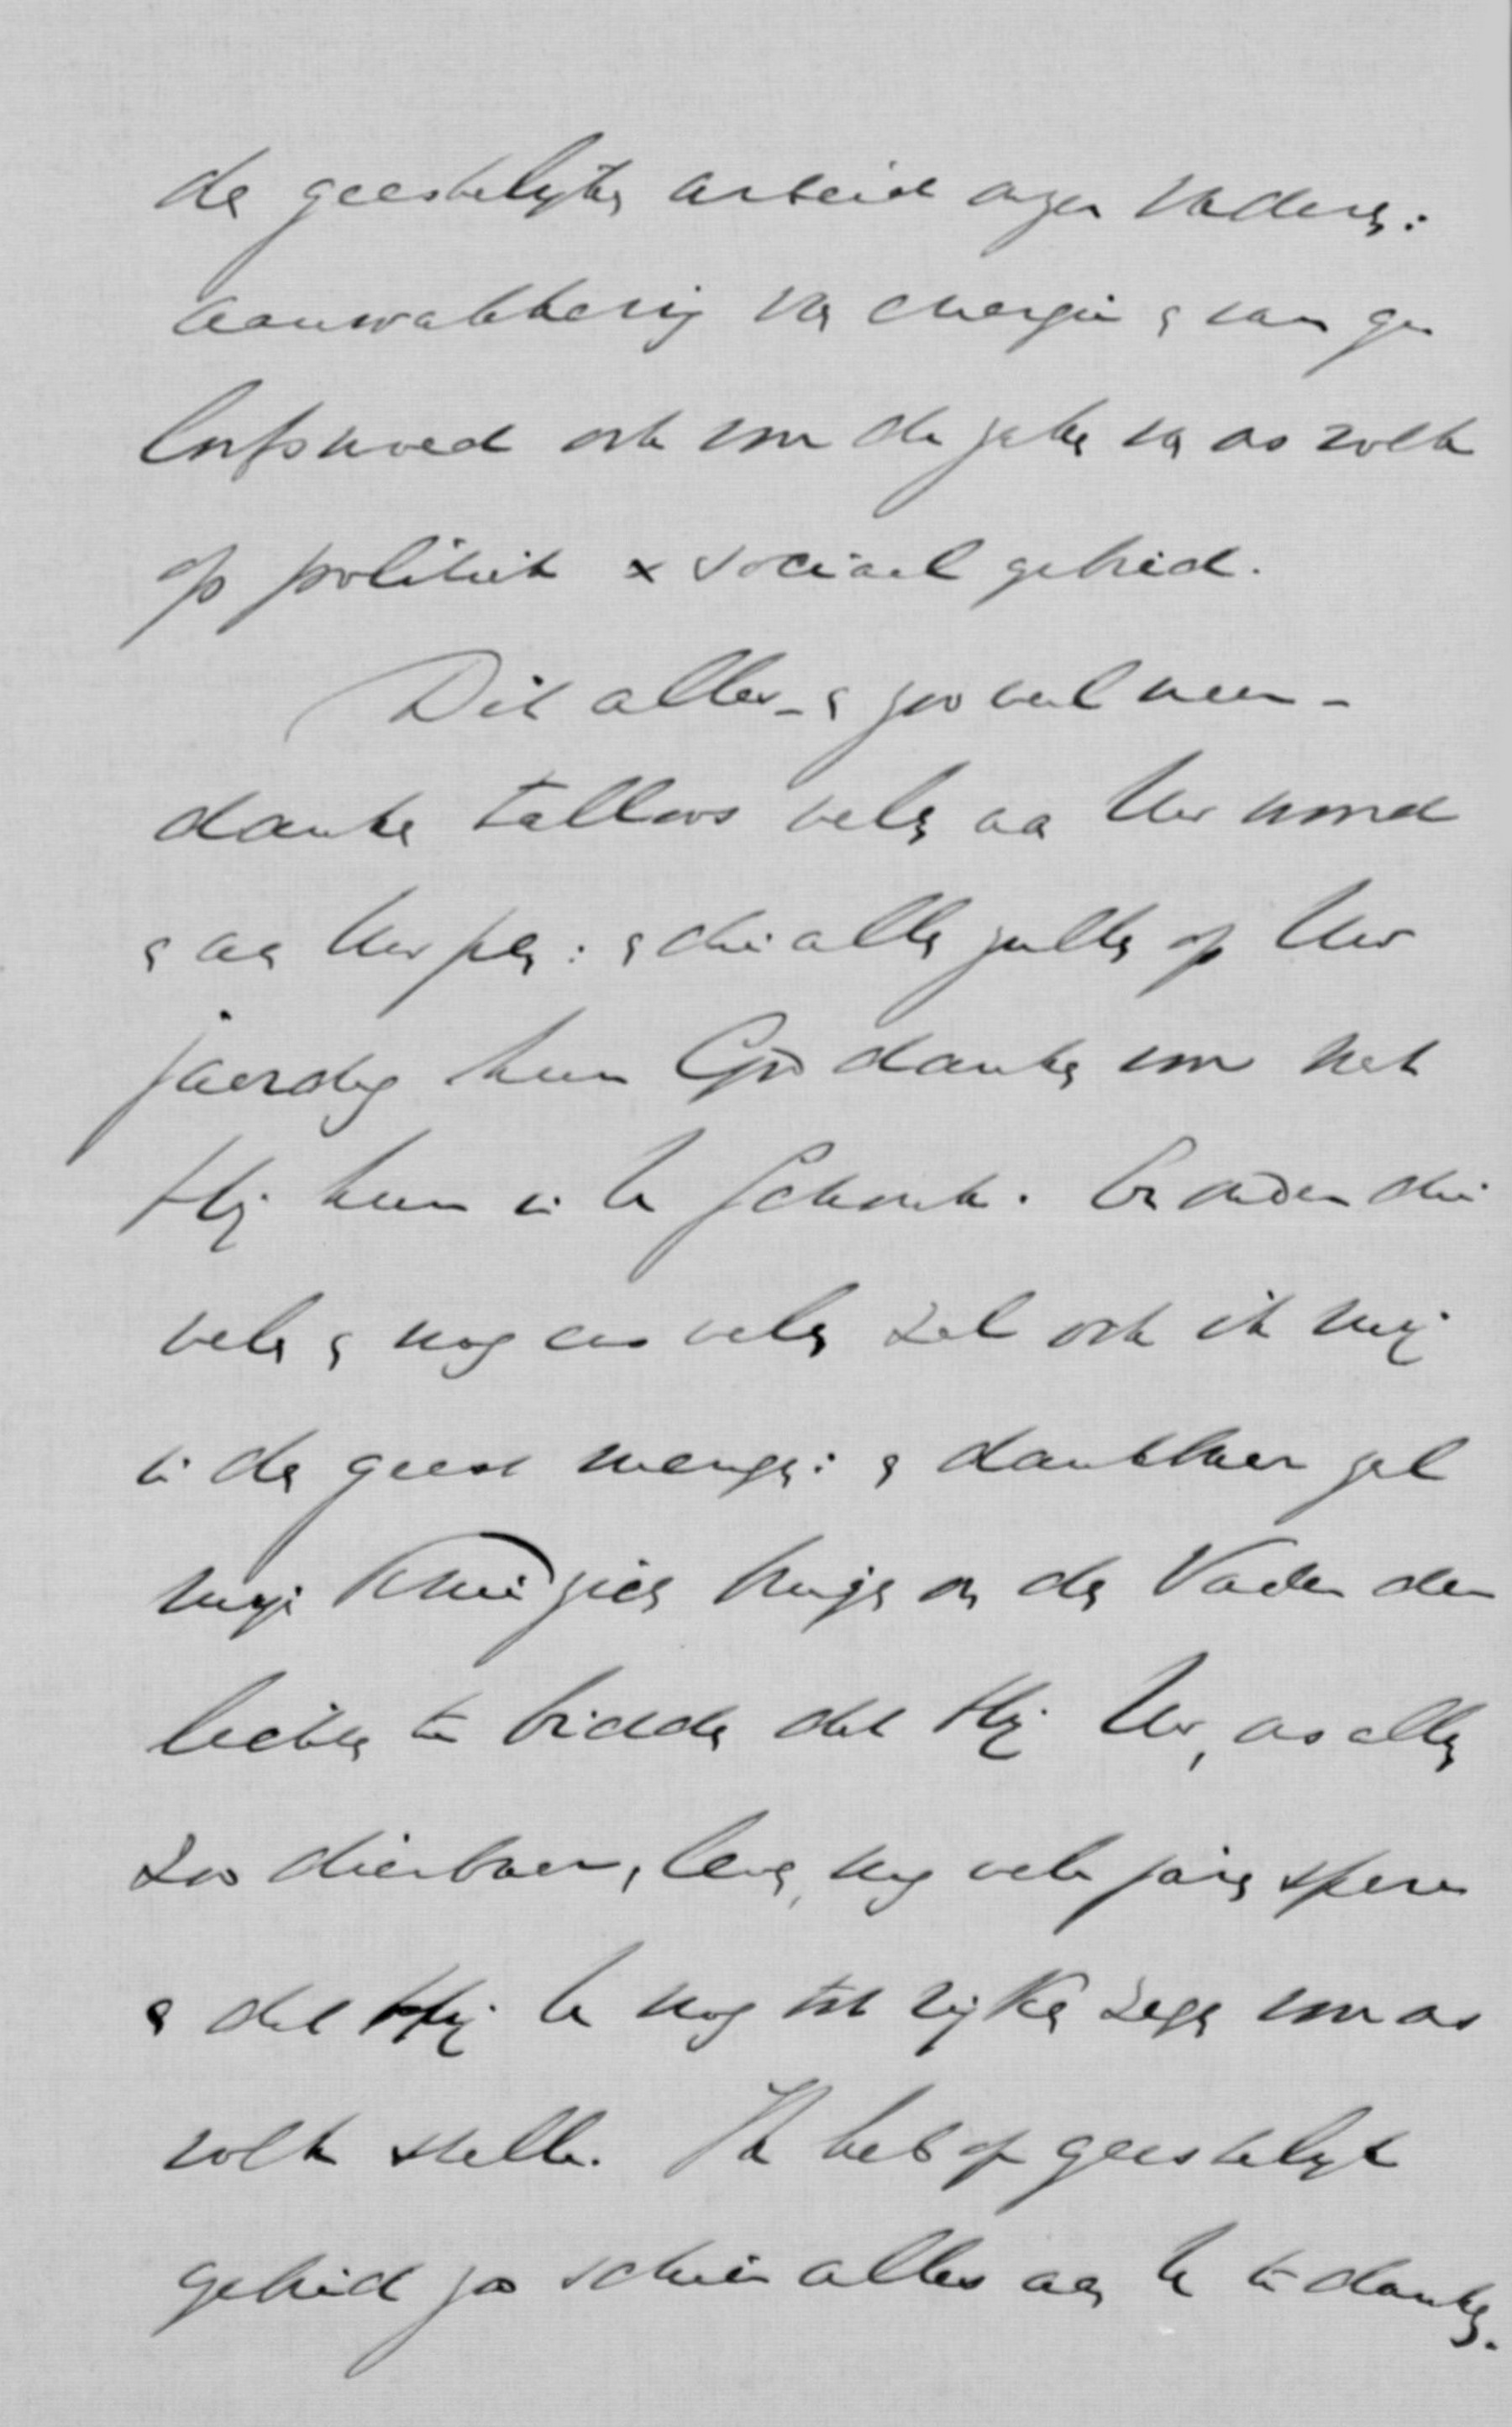 den geestelijken arbeid onzer Vaderen:
aanwakkering van energie en van ge
loofsmoed ook voor de zaken van ons volk
op politiek & sociaal gebied.
Dit alles - en zooveel meer -
danken talloos velen aan Uw mond
en aan Uw pen: en die allen zullen op Uw
jaardag hun God danken voor wat
Hij hun in U schonk. Onder die
velen en nog eens velen zal ook ik mij
in den geest mengen: en dankbaar zal
mijn knieën buigen om den Vader der
lichten te bidden dat Hij Uw, ons allen
zoo dierbaar, leven, nog vele jaren spare
en dat Hij U nog tot rijken zegen voor ons
volk stelle. Ik heb op geestelijk
gebied zoo schier alles aan U te danken.